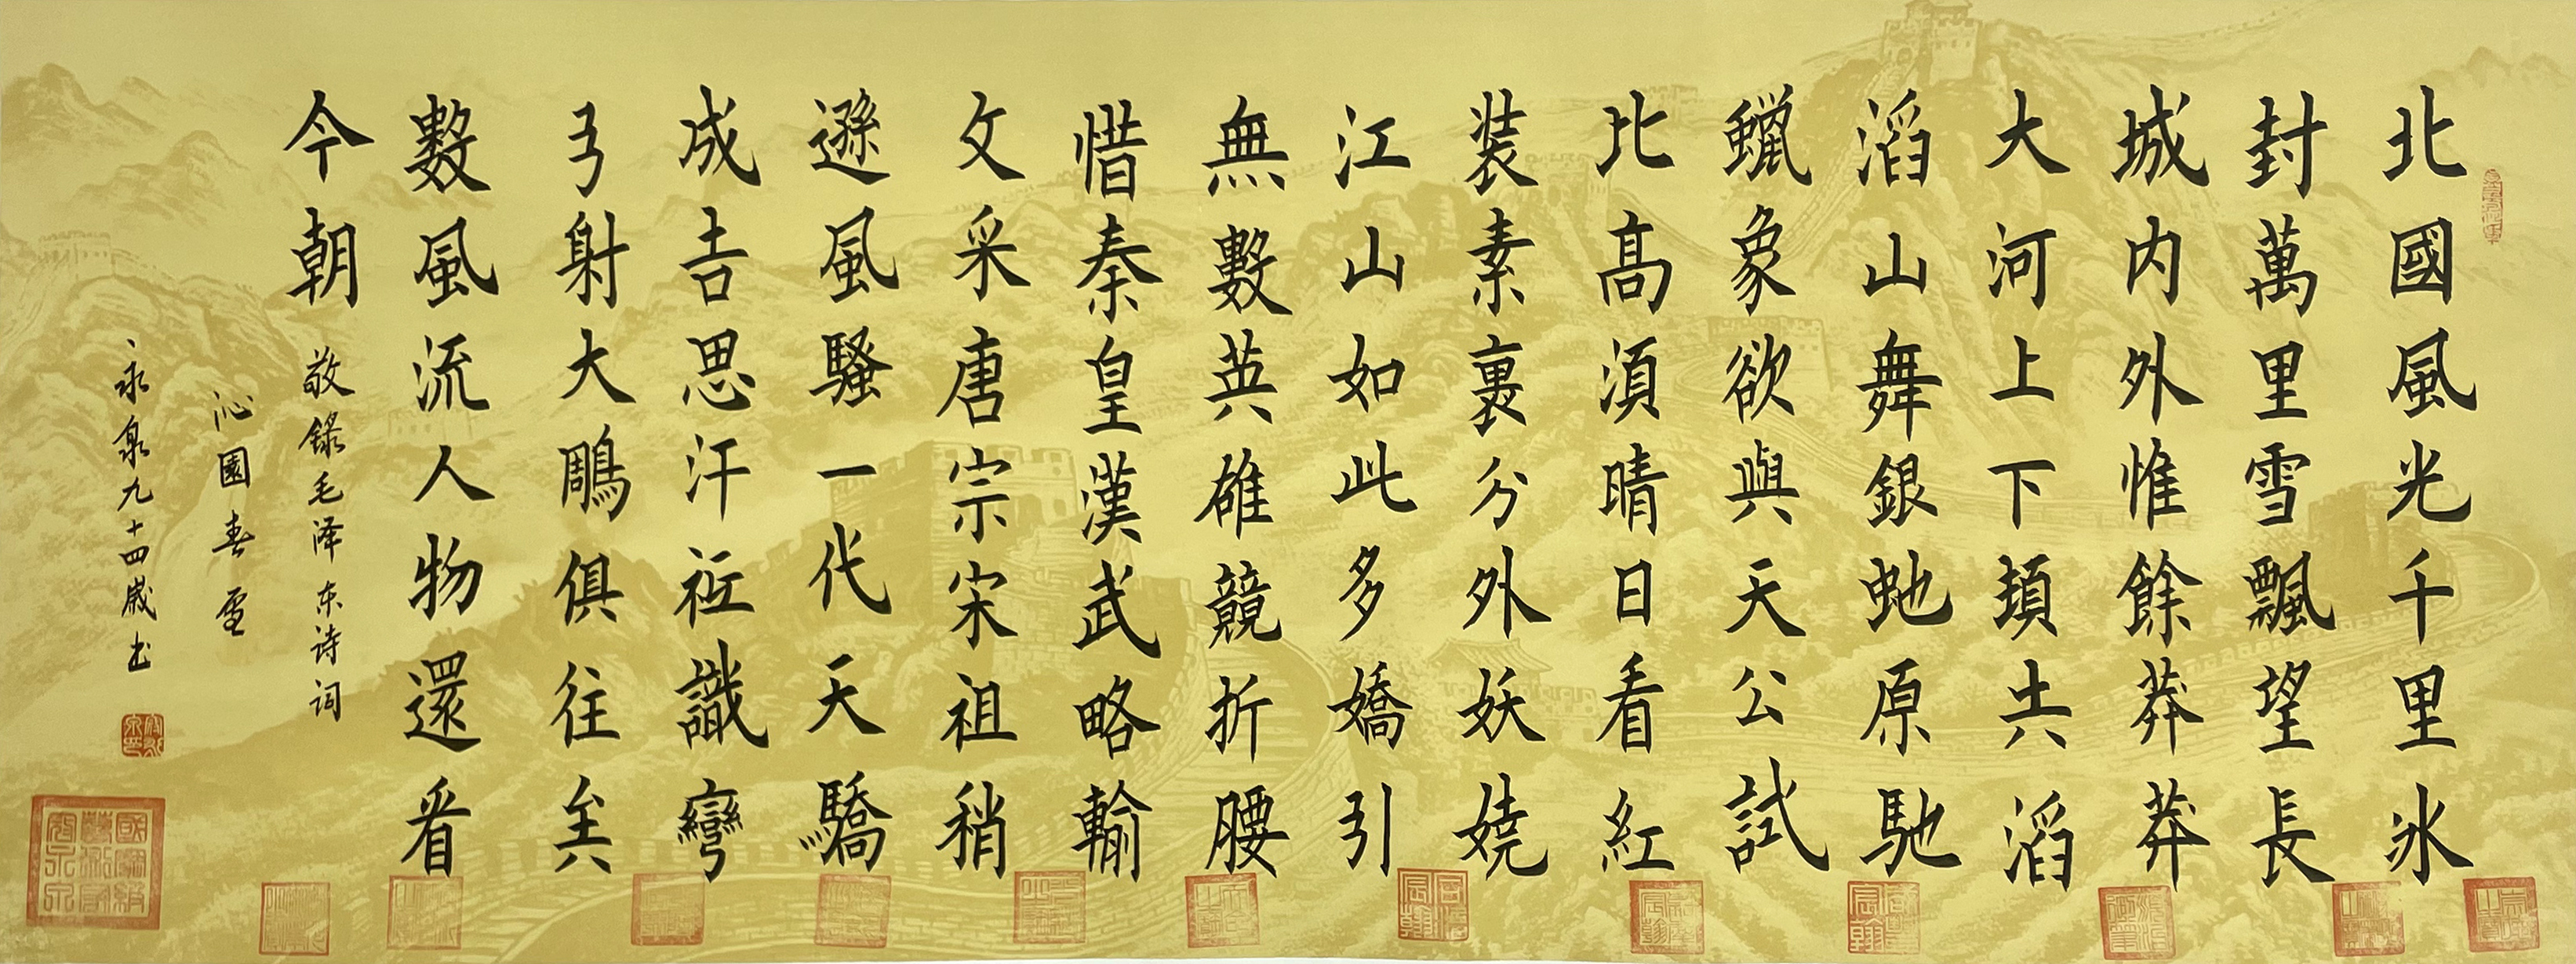 北國風光千里冰
封萬里雪飄望長
城内外惟餘莽莽
大河上下頓失滔
滔山舞銀虵原馳
蠟象欲與天公試
比髙須晴日看紅
装素裹分外妖嬈
江山如此多嬌引
無數英雄競折腰
惜秦皇漢武略輸
文采唐宗宋祖稍
遜風騷一代天驕
成吉思汗祗識彎
弓射大鵰俱往矣
數風流人物還看
今朝
敬錄毛泽东诗词
沁園春雪
永泉九十四歲书